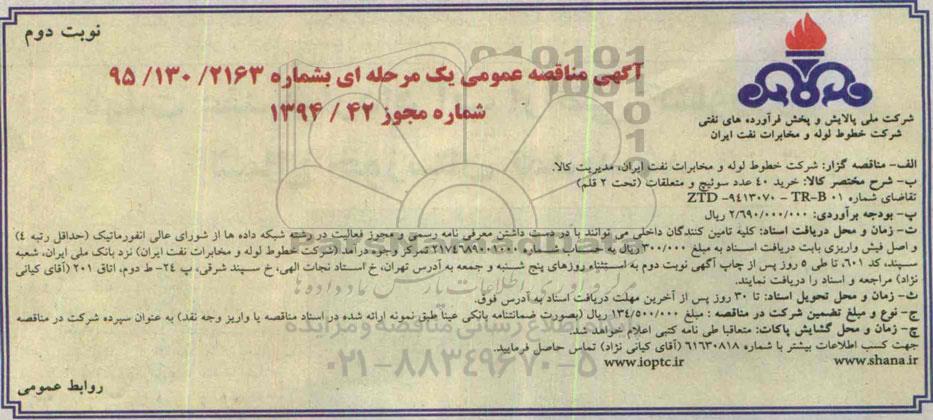 نوبت دوم
آگهی مناقصه عمومی یک مرحله ای بشماره ۲۱۶۳/ ۱۳۰/ ۹۵
شماره مجوز ۴۲ / ۱۳۹۴
شرکت ملی پالایش و پخش فرآورده های نفتی
شرکت خطوط لوله و مخابرات نفت ایران
الف- مناقصه گزار: شرکت خطوط لوله و مخابرات نفت ایران، مدیریت کالا.
ب- شرح مختصر کالا: خرید ۴۰ عدد سوئیچ و متعلقات (تحت ۲ قلم)
تقاضای شماره ZTD -۹۴۱۳۰۷۰ - TR-B ۰۱
پ- بودجه برآوردی: ۲/۶۹۰/۰۰۰/۰۰۰ ریال
ت- زمان و محل دریافت اسناد: کلیه تامین کنندگان داخلی می توانند با در دست داشتن معرفی نامه رسمی و مجوز فعالیت در رشته شبکه داده ها از شورای عالی انفورماتیک (حداقل رتبه ۴)
و اصل فیش واریزی بابت دریافت اسناد به مبلغ ۳۰۰/۰۰۰ ریال به حساب شماره تمرکز وجوه درآمد (شرکت خطوط لوله و مخابرات نفت ایران) نزد بانک ملی ایران، شعبه
سپند، کد ۶۰۱، تا طی ۵ روز پس از چاپ آگهی نوبت دوم به استثناء روزهای پنج شنبه و جمعه به آدرس تهران، خ استاد نجات الهی، خ سپند شرقی، پ ۲۴- ط دوم، اتاق ۲۰۱ (آقای کیانی
نژاد) مراجعه و اسناد را دریافت نمایند.
ث- زمان و محل تحویل اسناد: تا ۳۰ روز پس از آخرین مهلت دریافت اسناد به آدرس فوق.
ج- نوع و مبلغ تضمین شرکت در مناقصه : مبلغ ۱۳۴/۵۰۰/۰۰۰ ریال (بصورت ضمانتنامه بانکی عیناً طبق نمونه ارائه شده در اسناد مناقصه یا واریز وجه نقد) به عنوان سپرده شرکت در مناقصه
چ- زمان و محل گشایش پاکات: متعاقبا طی نامه کتبی اعلام خواهد شد.
جهت کسب اطلاعات بیشتر با شماره ۶۱۶۳۰۸۱۸ (آقای کیانی نژاد) تماس حاصل فرمایید.
www.shana.ir www.ioptc.ir
روابط عمومی
۰۲۱-۸۸۳۴۹۶۷۰-۵